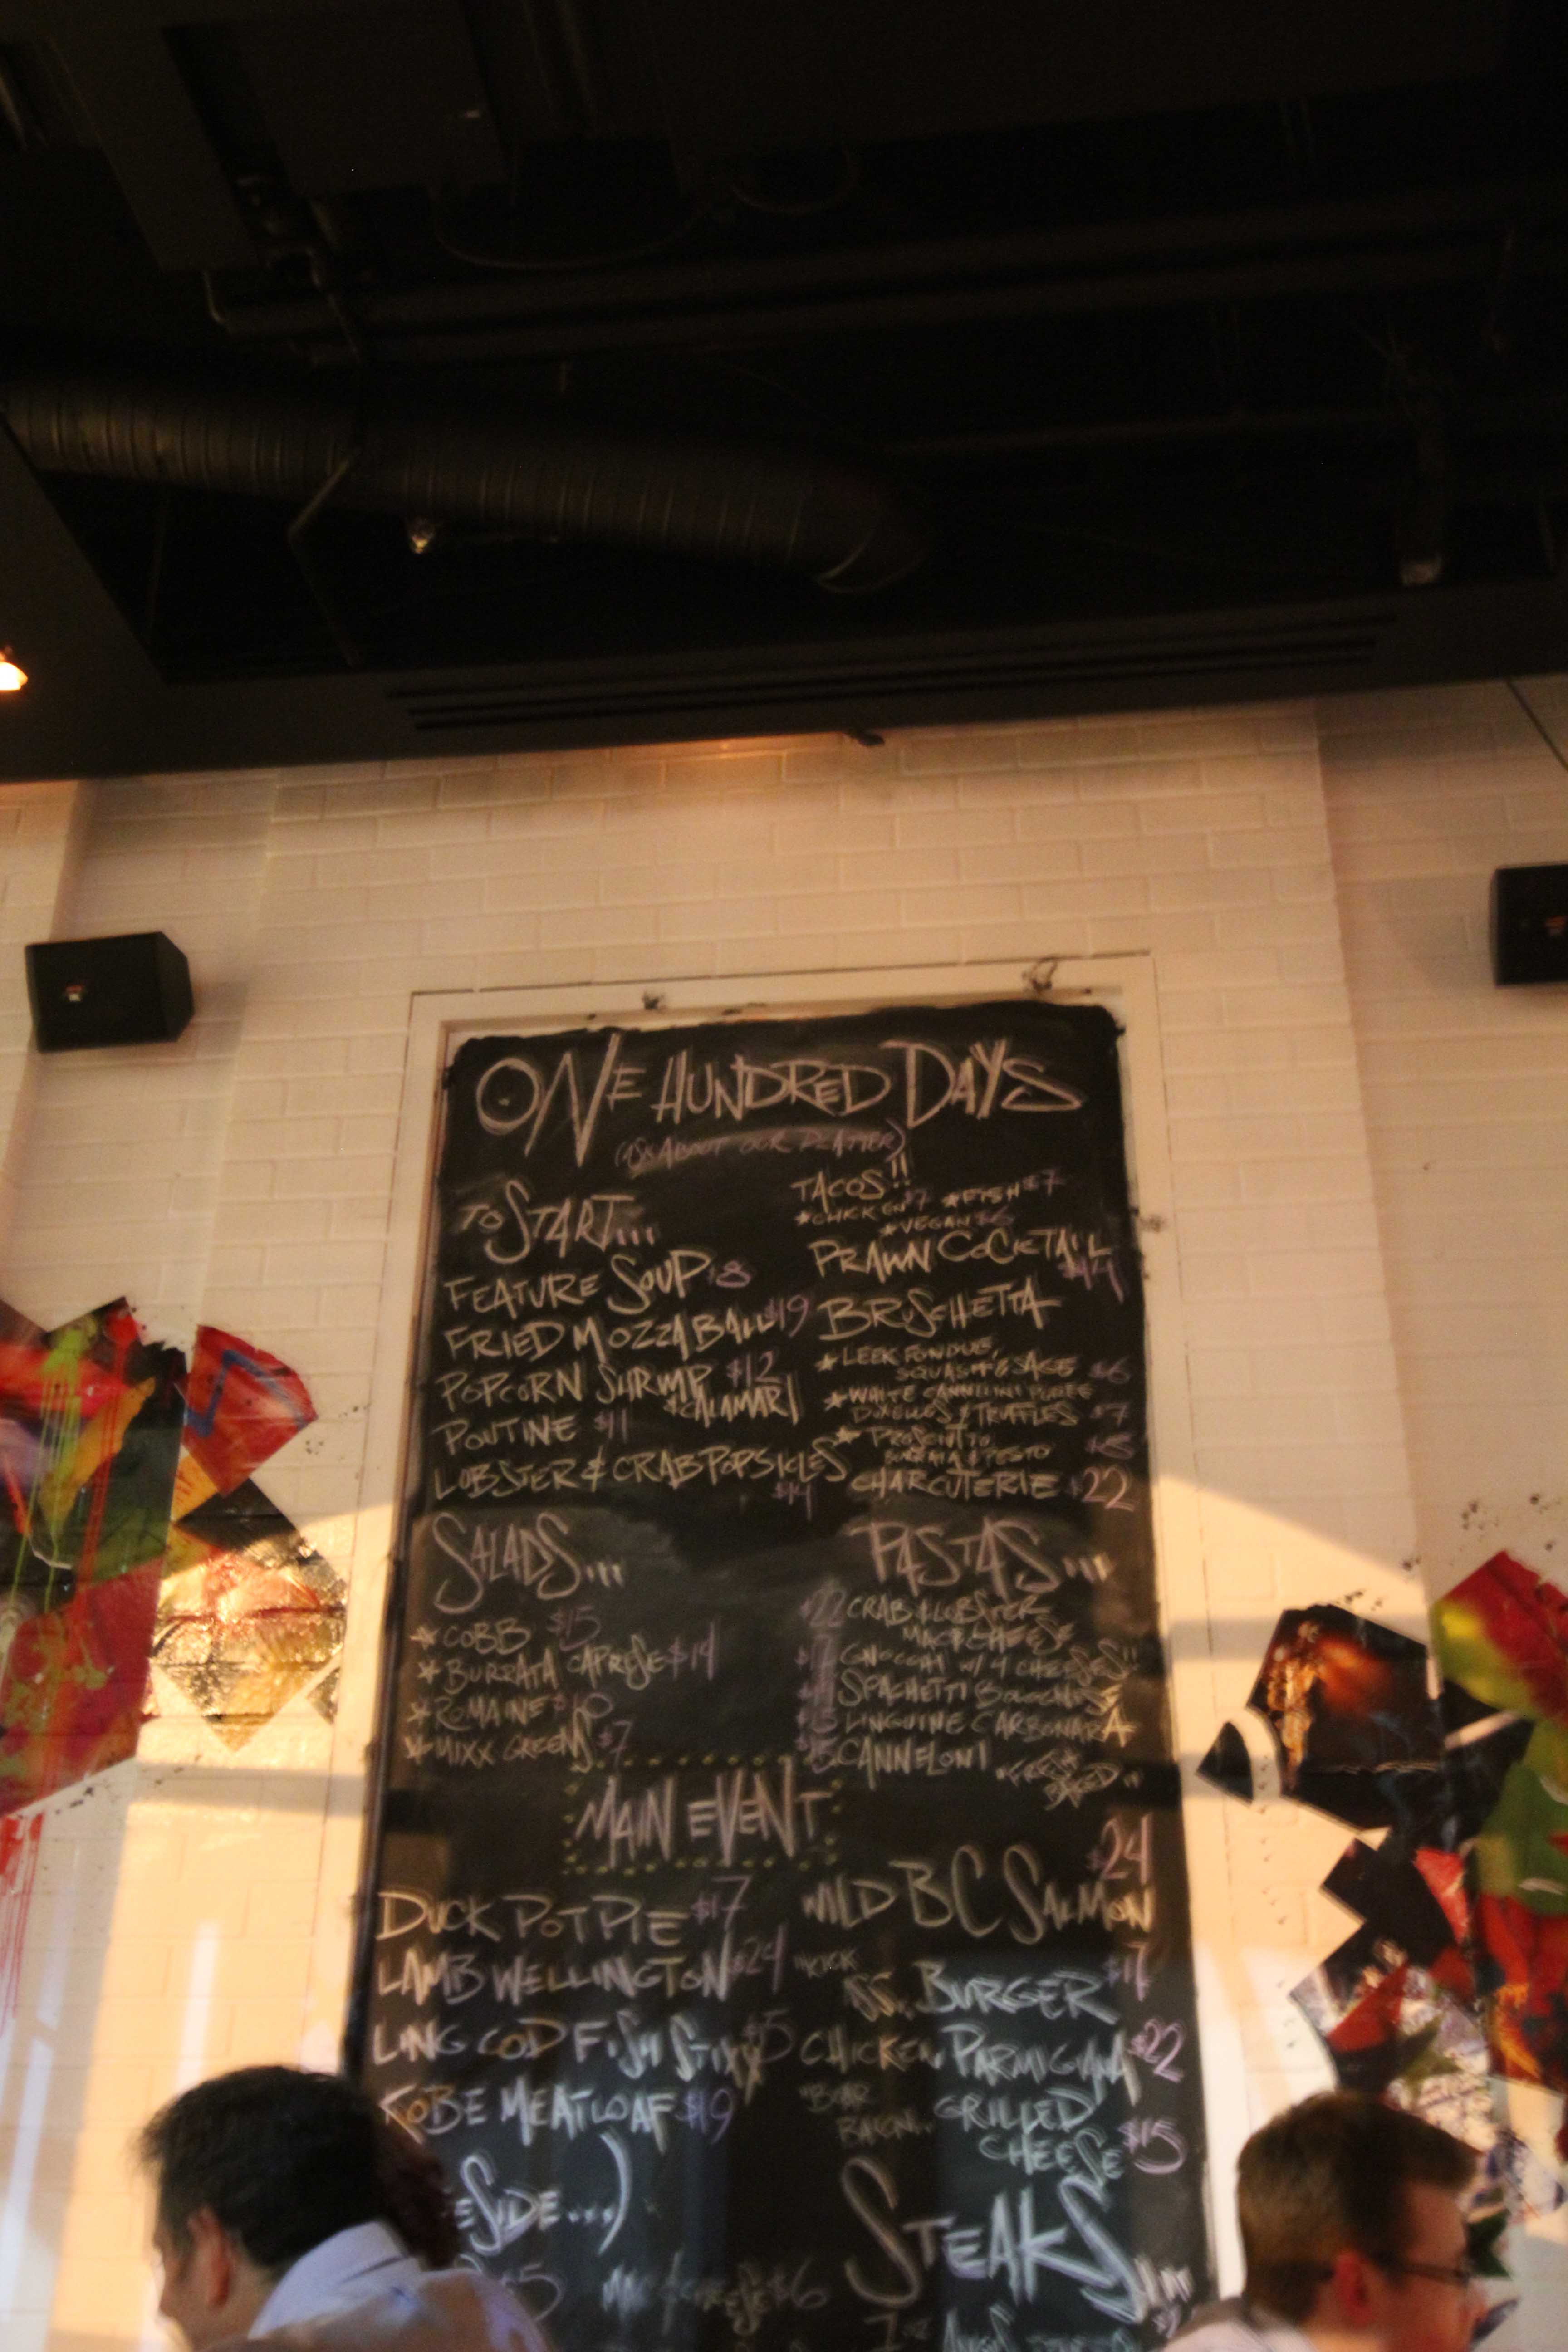 ONE HUNDRED DAYS
(ASK ABOUT OUR PLATTER)
TO START...
FEATURE SOUP $8
FRIED MOZZA BALL $19
POPCORN SHRIMP $12
& CALAMARI
POUTINE $11
LOBSTER & CRAB POPSICLES
$14
TACOS!!
*CHICKEN $7 *FISH $7
*VEGAN $6
PRAWN COCKTAIL
$14
BRUSCHETTA
*LEEK FONDUE,
SQUASH & SAGE $6
*WHITE CANNELINI PUREE
DUXELLES & TRUFFLES $7
* PROSCIUTTO
BURRATA & PESTO $8
CHARCUTERIE $22
SALADS...
*COBB $15
*BURRATA CAPRESE $14
*ROMAINE $10
*MIXX GREENS $7
PASTAS...
$22 CRAB & LOBSTER
MAC & CHEESE
GNOCCHI W/ 4 CHEESES!!
SPAGHETTI BOLOGNESE
LINGUINE CARBONARA
CANNELONI
MAIN EVENT
DUCK POT PIE $17
LAMB WELLINGTON $24
LING COD FISH STIXX
KOBE MEATLOAF $19
$24
WILD BC SALMON
"KICK
BURGER
CHICKEN PARMIGIANA $22
GRILLED
CHEESE $15
SIDE...)
MAC & CHEESE $6
STEAKS
7oz